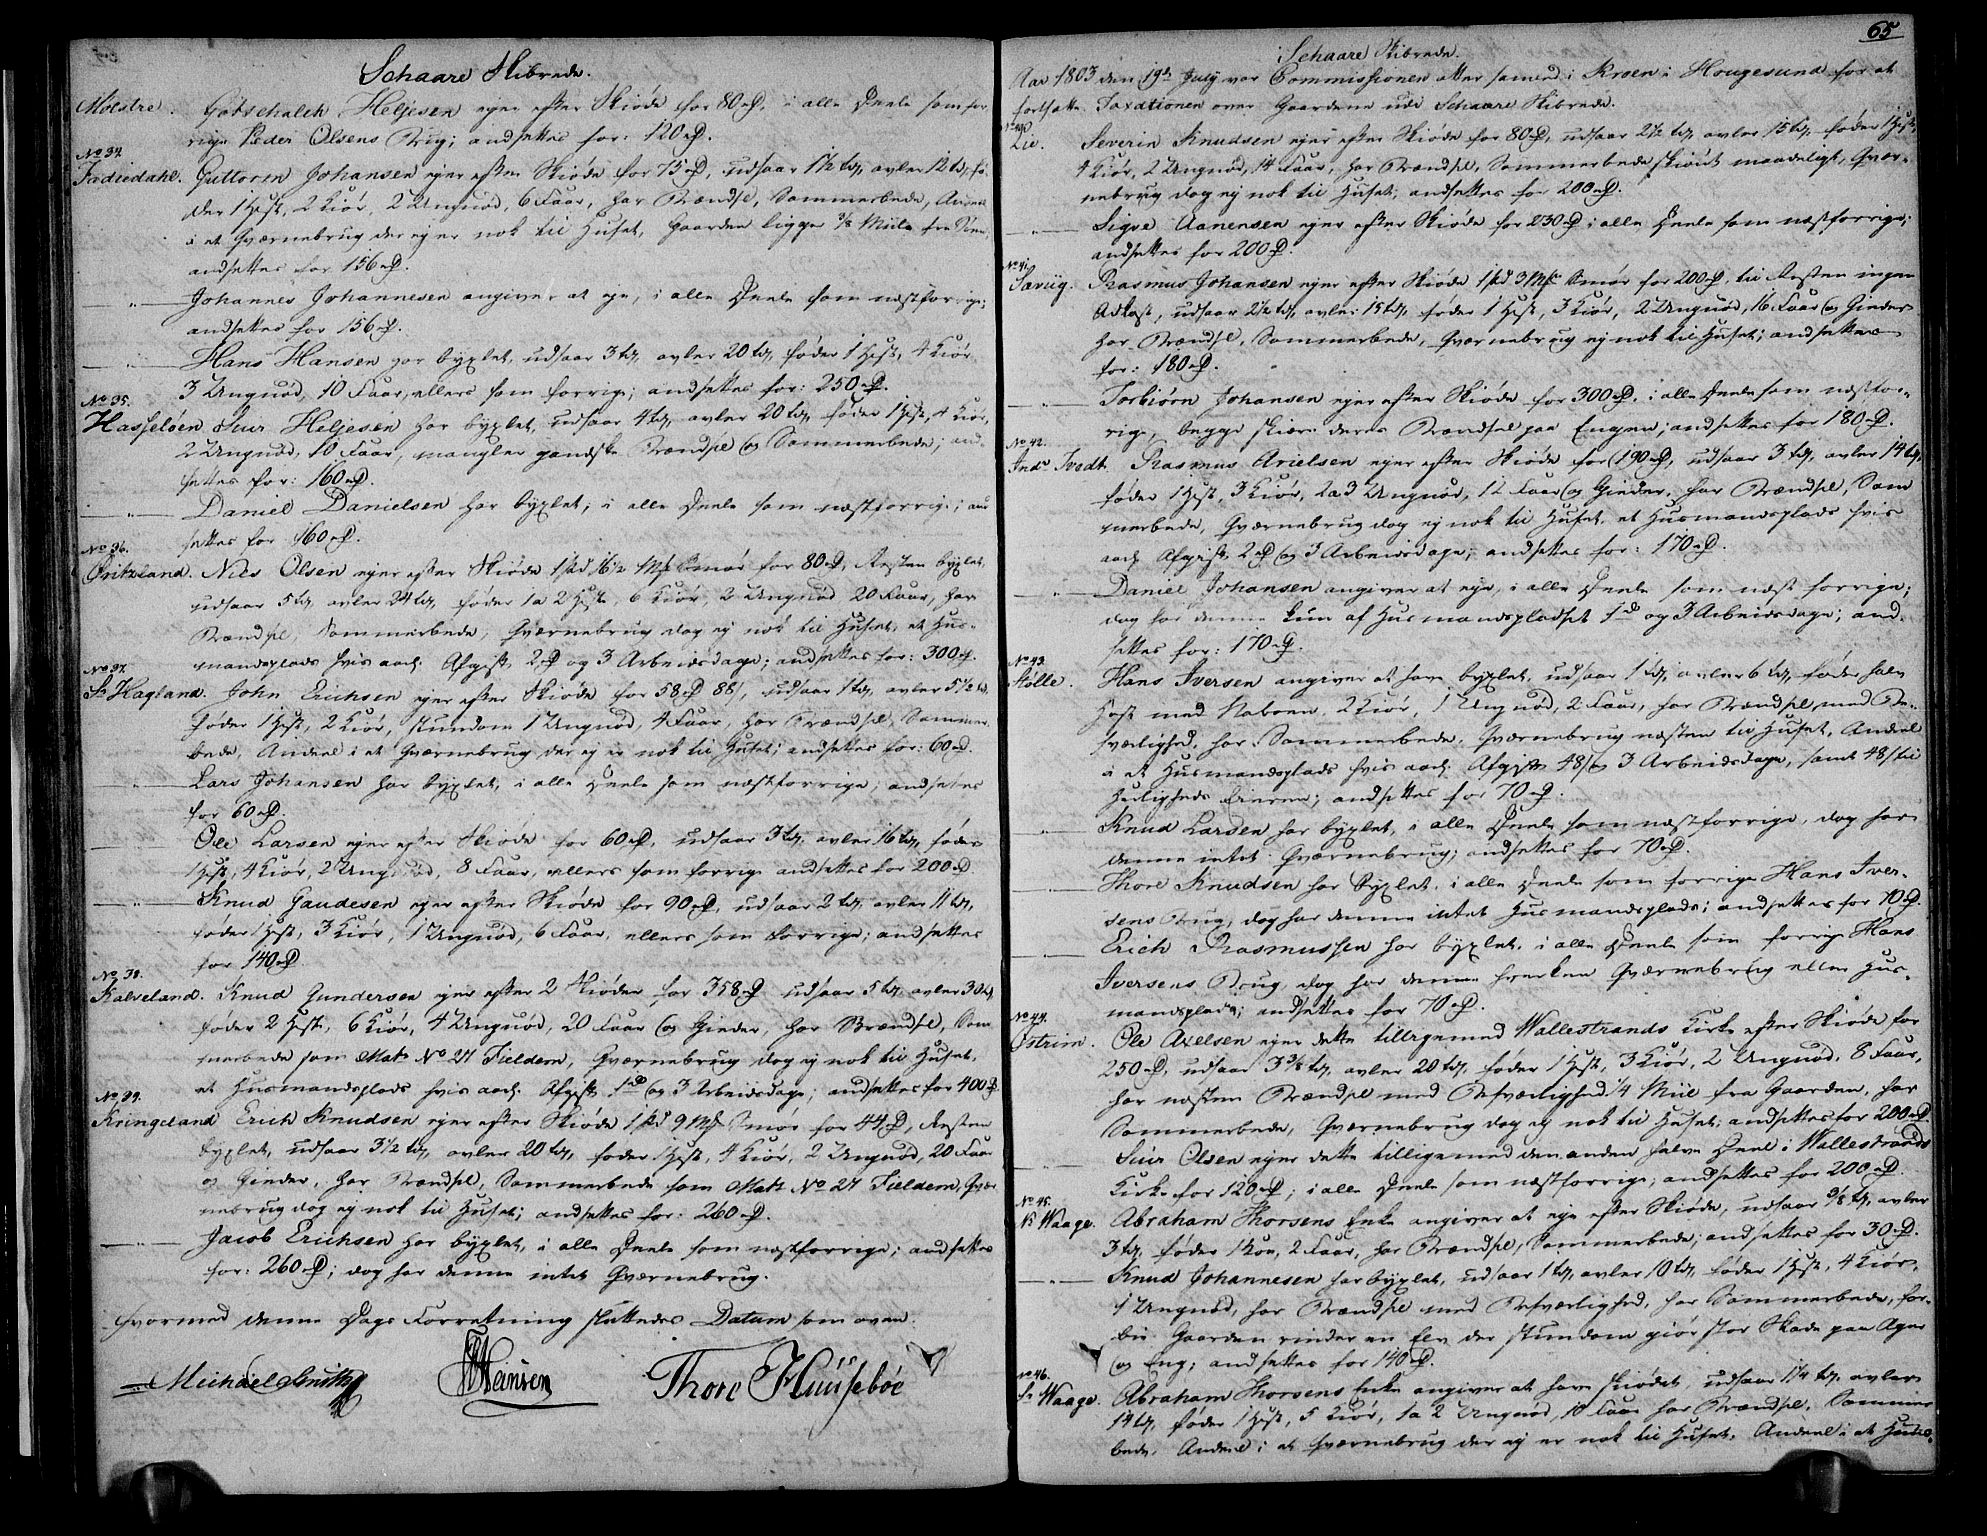 Schaare Skibrede.
Molstre. Gotschalch Heljesen ejer efter Skiøde for 80 rd, i alle Deele som for-
rige Peder Olsens Brug; andsettes for: 120 rd.
No 34.
Guttorm Johansen ejer efter Skiøde for 75 rd, udsaar 1½ td, avler 12 td, fø-
der 1 Hest, 2 Kiør, 2 Ungnød, 6 Faar, har Brændsel, Sommerbede, Andeel
i et Qværnebrug der ej er nok til Huset, Gaarden ligger 3/8 Miil fra Søen,
andsettes for 156 rd.
" Johannes Johannesen angiver at eje, i alle Deele som næstforrige;
andsettes for 156 rd.
" Hans Hansen har byxlet, udsaar 3 td, avler 20 td, føder 1 Hest, 4 Kiør,
3 Ungnød, 10 Faar, ellers som forrige; andsettes for: 250 rd.
No 35.
Hasseløen. Siur Heljesen har byxlet, udsaar 4 td, avler 20 td, føder 1 Hest, 4 Kiør,
2 Ungnød, 10 Faar, mangler gandske Brændsel og Sommerbede; and-
settes for: 160 rd.
" Daniel Danielsen har byxlet, i alle Deele som næstforrige; and-
settes for 160 rd.
No 36.
Nies Olsen ejer efter Skiøde 1 pd 16½ Mk Smør for 80 rd, Resten byxlet,
udsaar 5 td, avler 24 td, føder 1 a 2 Heste, 6 Kiør, 2 Ungnød 20 Faar, har
Brændsel, Sommerbede, Qværnebrug dog ej nok til Huset, et Huus-
mandsplads hvis aarl. Afgift 2 rd og 3 Arbeidsdage; andsettes for: 300 rd.
No 37.
Sr Hagland. John Erichsen ejer efter Skiøde for 58 rd 88 s, udsaar 1 td, avler 5½ td,
føder 1 Hest, 2 Kiør, stundom 1 Ungnød, 4 Faar, har Brændsel, Sommer-
bede, Andeel i et Qværnebrug der ej er nok til Huset; andsettes for: 60 rd.
" Lars Johansen har byxlet, i alle Deele som næstforrige; andsettes
for 60 rd.
" Ole Larsen ejer efter Skiøde for 60 rd, udsaar 3 td, avler 16 td, føder
1 Hest, 4 Kiør, 2 Ungnød, 8 Faar, ellers som forrige andsettes for 200 rd
" Knud Gaudesen ejer efter Skiøde for 90 rd, udsaar 2 td, avler 11 td,
føder 1 Hest, 3 Kiør, 1 Ungnød, 6 Faar, ellers som forrige; andsettes
for 140 rd.
No 38.
Kalveland. Knud Gundersen ejer efter 2 Skiøder for 358 rd udsaar 5 td, avler 30 td,
føder 2 Heste, 6 Kiør, 4 Ungnød, 20 Faar og Gieder, har Brændsel, Som-
merbede som Matr No 27 Fieldem, Qværnebrug dog ej nok til Huset,
et Huusmandsplads hvis aarl. Afgift 1 rd og 3 Arbeidsdage; andsettes for 400 rd.
No 39.
Kringeland Erich Knudsen ejer efter Skiøde 1 pd 9 Mk Smør for 44 rd, Resten
byxlet, udsaar 3½ td, avler 20 td, føder 1 Hest, 4 Kiør, 2 Ungnød, 20 Faar
og Gieder, har Brændsel, Sommerbede som Matr No 27 Fieldem, Qvær-
nebrug dog ej nok til Huset; andsettes for: 260 rd.
" Jacob Erichsen har byxlet, i alle Deele som næstforrige; andsettes
for: 260 rd; dog har denne intet Qværnebrug.
Hvormed denne Dags Forretning sluttedes Datum som oven.
Michael Smith Heinsen Thore Huusebøe
65
Schaare Skibrede.
Aar 1803 den 19de July var Commissionen atter samlet i Kroen i Hougesund for at
fortsætte Taxationen over Gaardene udi Schaare Skibrede.
No 40.
Lie. Severin Knudsen ejer efter Skiøde for 80 rd, udsaar 2½ td, avler 15 td, føder 1 Hest,
4 Kiør, 2 Ungnød, 14 Faar, har Brændsel, Sommerbede skiønt maadeligt, Qvær-
nebrug dog ej nok til Huset; andsettes for 200 rd.
" Sigve Aanensen ejer efter Skiøde for 230 rd i alle Deele som næstforrige;
andsettes for 200 rd.
No 41.
Rasmus Johansen ejer efter Skiøde 1 pd 3 Mk Smør for 200 rd, til Resten ingen
Adkost, udsaar 2½ td, avler 15 td, føder 1 Hest, 3 Kiør, 2 Ungnød, 16 Faar og Gieder
har Brændsel, Sommerbede, Qværnebrug ej nok til Huset; andsettes
for: 180 rd.
" Torbiørn Johansen ejer efter Skiøde for 300 rd, i alle Deele som næstfor-
rige, begge skiær deres Brændsel paa Engen; andsettes for 180 rd.
No 42.
Indr Tvedt. Rasmus Arielsen ejer efter Skiøde for 190 rd, udsaar 3 td, avler 14 td,
føder 1 Hest, 3 Kiør, 2 a 3 Ungnød, 12 Faar og Gieder, har Brændsel, Som-
merbede, Qværnebrug dog ej nok til Huset, et Huusmandsplads hvis
aarl. Afgift 2 rd og 3 Arbeidsdage; andsettes for: 170 rd.
" Daniel Johansen angiver at eje, i alle Deele som næst forrige;
dog har denne kun af Husmandspladset 1 rd og 3 Arbeidsdage; and-
settes for: 170 rd.
No 43.
Stølle. Hans Iversen angiver at have byxlet, udsaar 1 td, avler 6 td, føder halv
Hest med Naboen, 2 Kiør, 1 Ungnød, 2 Faar, har Brændsel med Be-
sværlighed, har Sommerbede, Qværnebrug næsten til Huset, Andeel
i et Huusmandsplads hvis aarl. Afgift 48 s og 3 Arbeidsdage, samt 48 s til
Herligheds Eieren; andsettes for 70 rd.
" Knud Larsen har byxlet, i alle Deele som næstforrige, dog har
denne intet Qværnebrug; andsettes for 70 rd.
" Thore Knudsen har byxlet, i alle Deele som forrige Hans Iver-
sens Brug, dog har denne intet Huusmandsplads; andsettes for 70 rd.
" Erich Rasmussen har byxlet, i alle Deele som forrige Hans
Iversens Brug, dog har denne hverken Qværnebrug eller Hus-
mandsplads; andsettes for 70 rd.
No 44.
Østrim. Ole Axelsen ejer dette tilligemed Wallestrands Kirke efter Skiøde for
250 rd, udsaar 3 3/8 td, avler 20 td, føder 1 Hest, 3 Kiør, 2 Ungnød, 8 Faar,
har næsten Brændsel med Besværlighed 1/4 Miil fra Gaarden, har
Sommerbede, Qværnebrug dog ej nok til Huset; andsettes for 200 rd.
" Siur Olsen ejer dette tilligemed den anden halve Deel i Wallestrands
Kirke for 120 rd; i alle Deele som næstforrige; andsettes for 200 rd.
No 45.
Nr Waage. Abraham Thorsens Enke angiver at eje efter Skiøde, udsaar 3/8 td, avler
3 td, føder 1 Koe, 2 Faar, har Brændsel, Sommerbede; andsettes for 30 rd.
" Knud Johannesen har byxlet, udsaar 1 td, avler 10 td, føder 1 Hest, 4 Kiør,
1 Ungnød, har Brændsel med Besværlighed, har Sommerbede, for-
bie Gaarden rinder en Elv der stundom giør stor Skade paa Ager
og Eng; andsettes for 140 rd.
No 46.
Sr Waage. Abraham Thorsens Enke angiver at have skiødet, udsaar 1¼ td, avler
14 td, føder 1 Hest, 5 Kiør, 1 a 2 Ungnød, 10 Faar har Brændsel, Sommer-
bede, Andeel i et Qværnebrug der ej er nok til Huset, Andeel i et Huus-